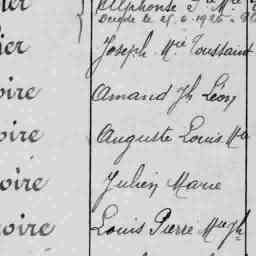 ier Alphonse J. Mie
Décédé le 25-6-1926 à
ier Joseph Mie Toussaint
oire Amand Jh Léon
oire Auguste Louis Mie
oire Julien Marie
oire Louis Pierre Mie Jh